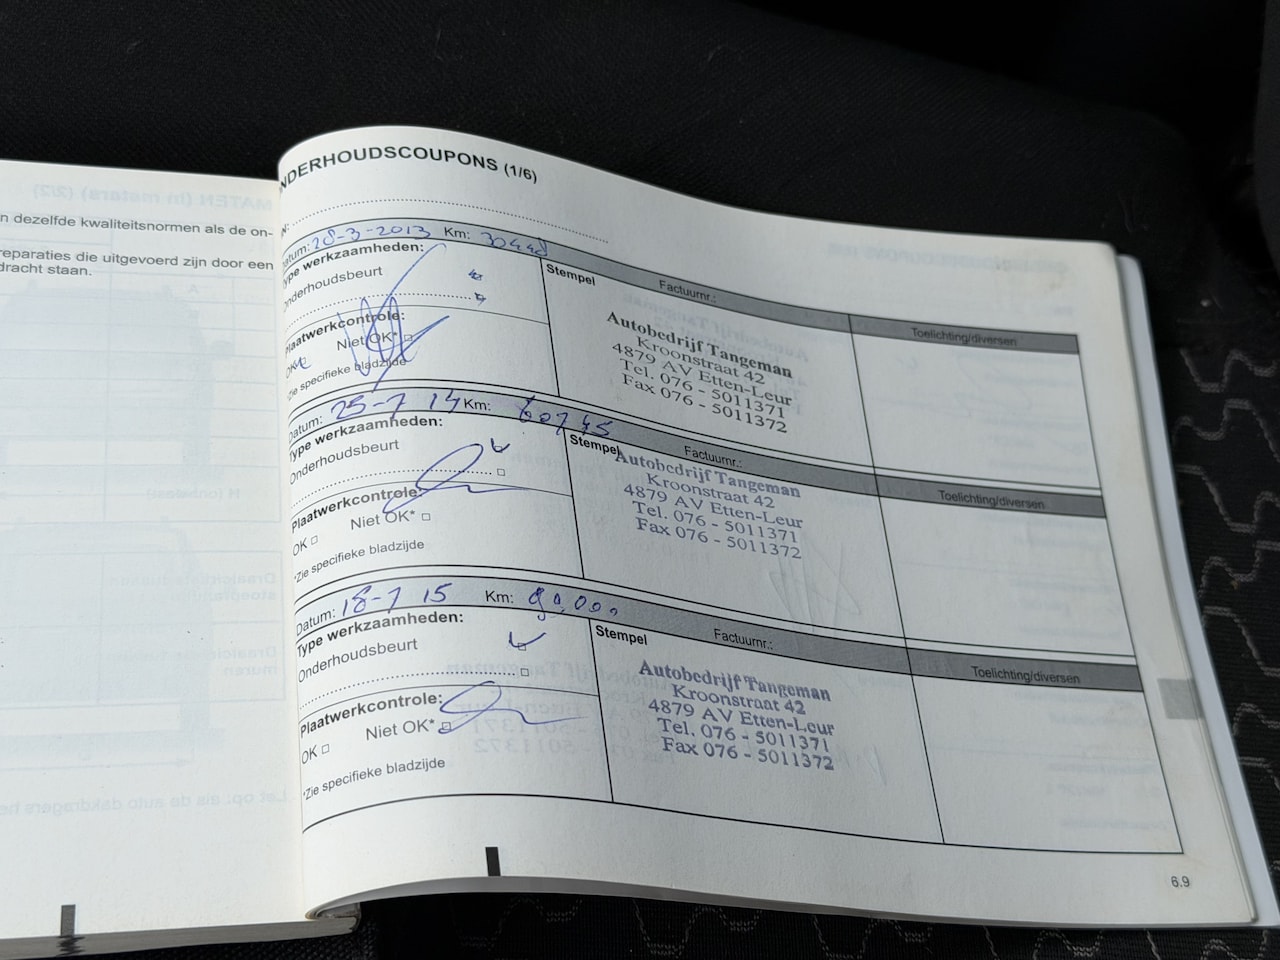 n dezelfde kwaliteitsnormen als de on-
reparaties die uitgevoerd zijn door een
dracht staan.
NDERHOUDSCOUPONS (1/6)
N:
atum: 28-3-2013 Km: 30448
ype werkzaamheden:
Onderhoudsbeurt
Plaatwerkcontrole:
OK Niet OK*
*Zie specifieke bladzijde
Stempel
Factuurnr.:
Toelichting/diversen
Autobedrijf Tangeman
Kroonstraat 42
4879 AV Etten-Leur
Tel. 076 - 5011371
Fax 076 - 5011372
Datum: 25-7 14 Km: 60745
Type werkzaamheden:
Onderhoudsbeurt
Plaatwerkcontrole:
OK Niet OK*
*Zie specifieke bladzijde
Stempel
Factuurnr.:
Toelichting/diversen
Autobedrijf Tangeman
Kroonstraat 42
4879 AV Etten-Leur
Tel. 076 - 5011371
Fax 076 - 5011372
Datum: 18-7 15 Km: 90.000
Type werkzaamheden:
Onderhoudsbeurt
Plaatwerkcontrole:
OK Niet OK*
*Zie specifieke bladzijde
Stempel
Factuurnr.:
Toelichting/diversen
Autobedrijf Tangeman
Kroonstraat 42
4879 AV Etten-Leur
Tel. 076 - 5011371
Fax 076 - 5011372
6.9